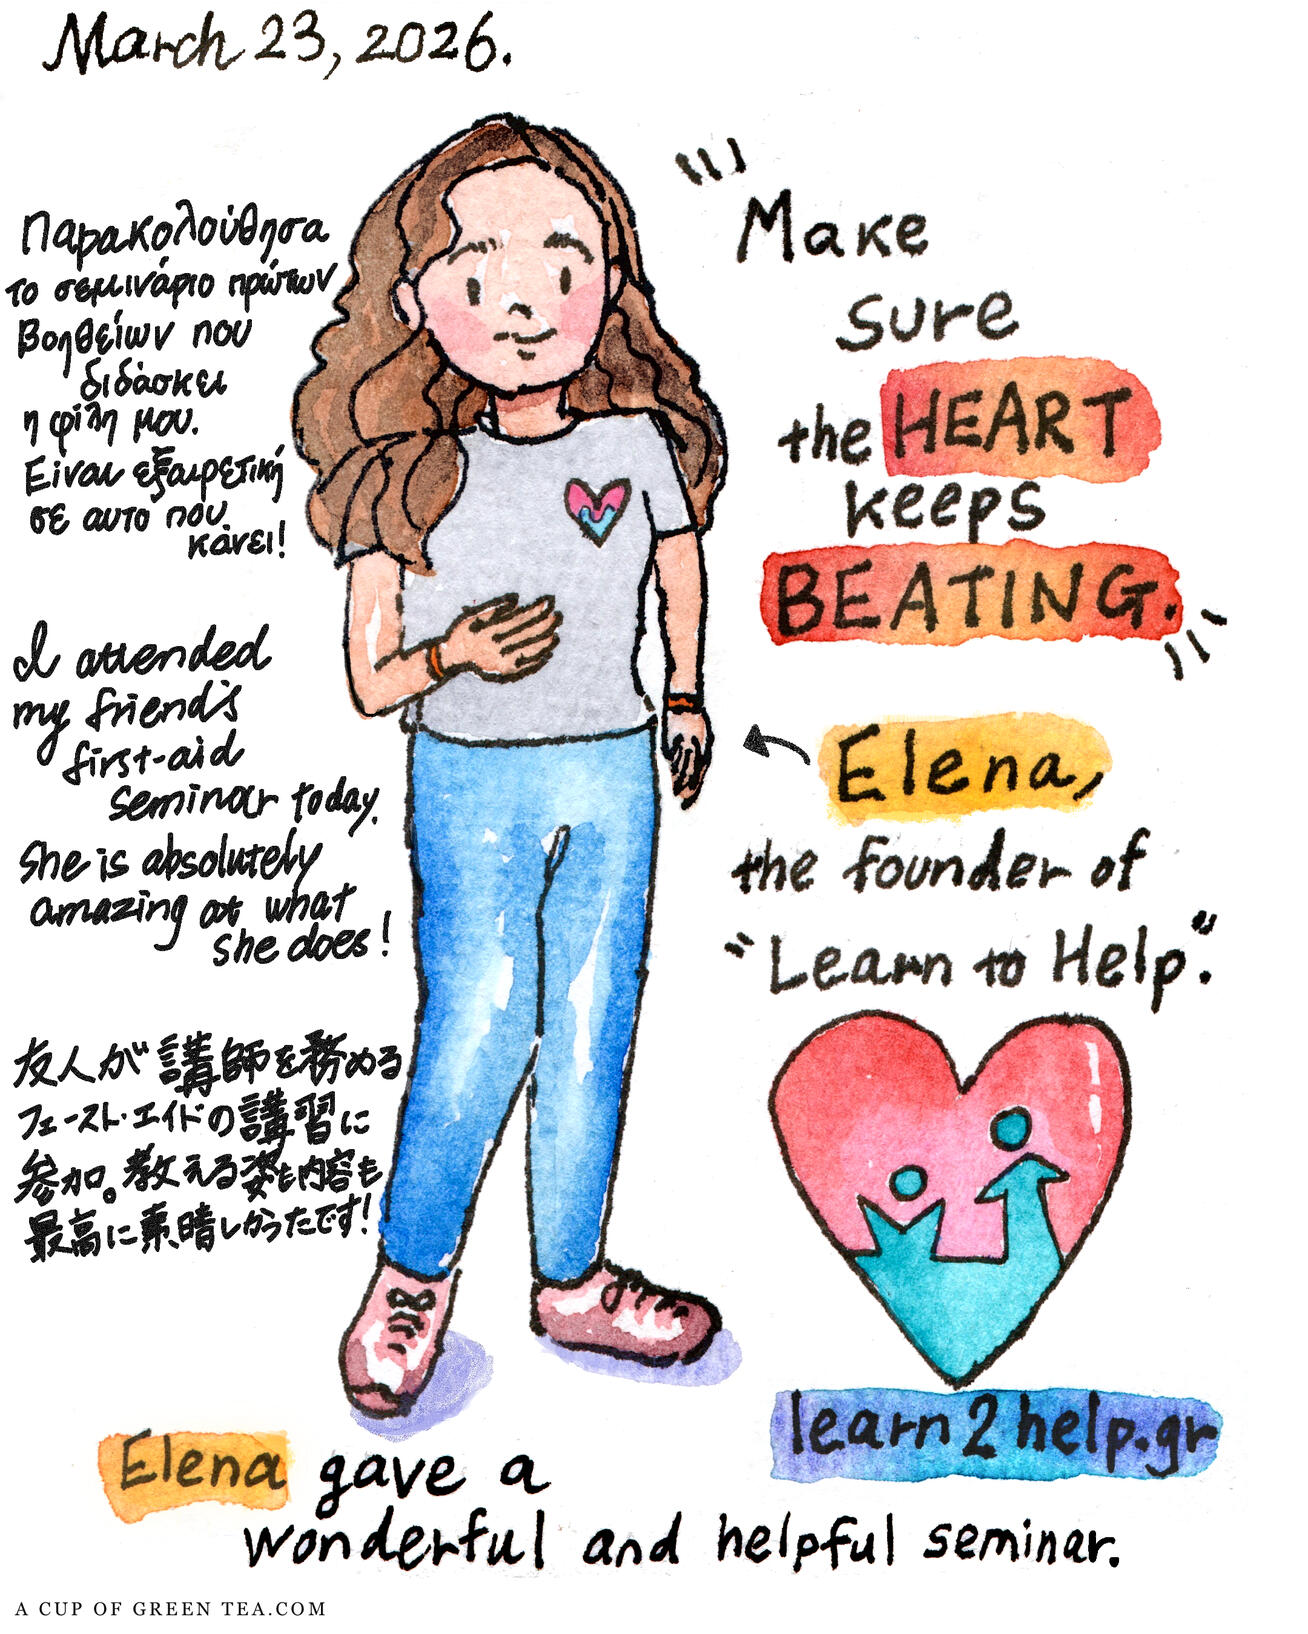 March 23, 2026.
Παρακολούθησα
το σεμινάριο πρώτων
βοηθείων που
διδάσκει
η φίλη μου.
Είναι εξαιρετική
σε αυτο που
κάνει!
I attended
my friend's
first-aid
seminar today.
She is absolutely
amazing at what
she does!
友人が講師を務める
フェースト・エイドの講習に
参加。教える姿も内容も
最高に素晴しかったです!
"Make
sure
the HEART
keeps
BEATING."
Elena,
the founder of
"Learn to Help".
learn2help.gr
Elena gave a
wonderful and helpful seminar.
A CUP OF GREEN TEA.COM